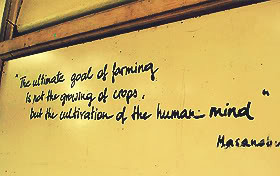 "The ultimate goal of farming
is not the growing of crops,
but the cultivation of the human mind"
Masanobu